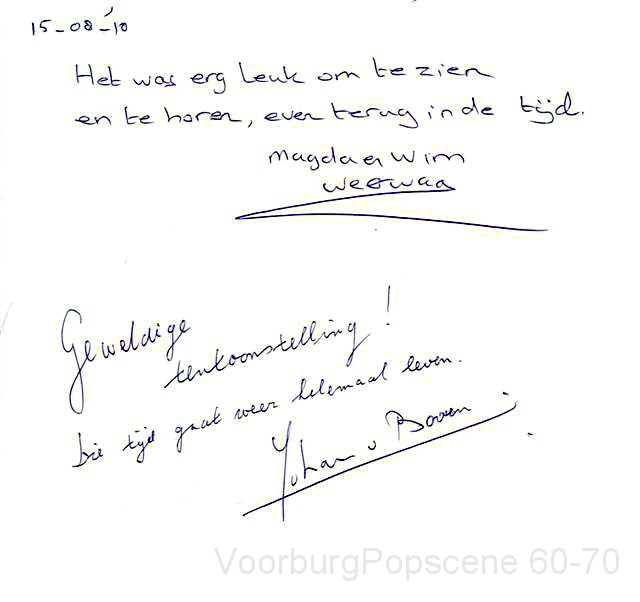 15-08-'10
Het was erg leuk om te zien
en te horen, even terug in de tijd.
Magda en Wim
Geweldige
tentoonstelling!
Die tijd gaat weer helemaal leven.
Johan v Boven
VoorburgPopscene 60-70